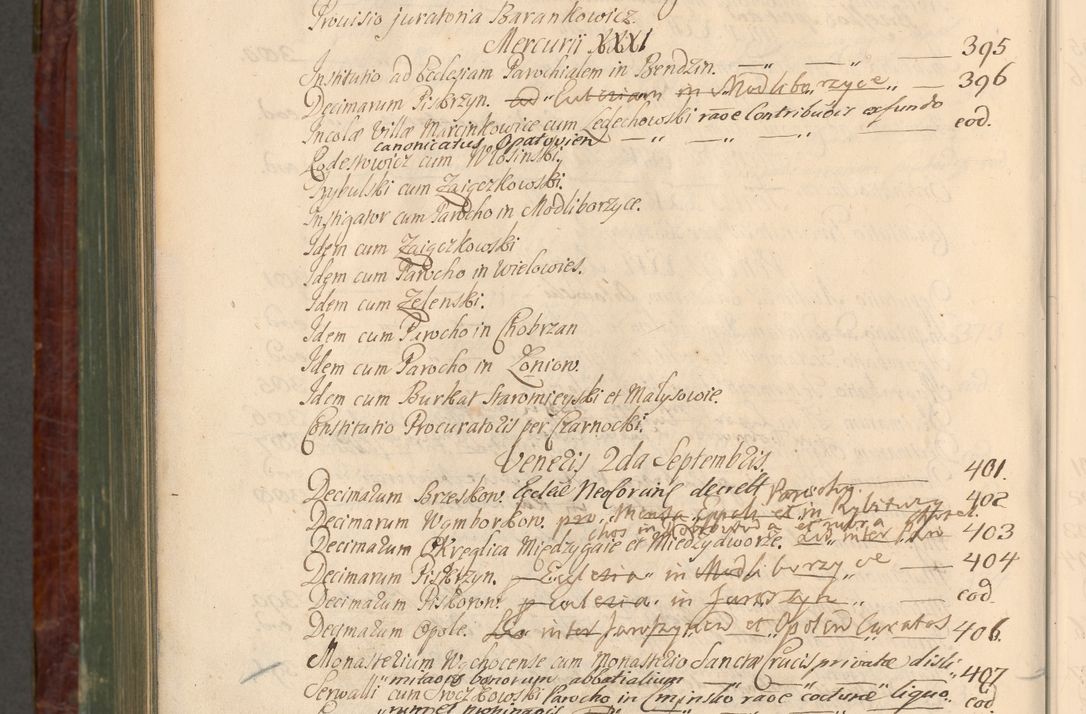 Provisio juratoria Barankowicz.
Mercurii XXXI
Institutio ad Ecclesiam Parochialem in Bendzin. — " — " — 395
Decimarum Piskrzyn. ad Ecclesiam in Modliborzyce " — 396
Incolæ Villæ Marcinkowice cum Ledechowski raõe Contribuõis ex fundo
canonicatus Opatovien — " — " — " — eod.
Lodestowicz cum Włosinski.
Trybulski cum Zajączkowski.
Instigator cum Parocho in Modliborzyce.
Idem cum Zajączkowski
Idem cum Parocho in Wielowies.
Idem cum Zelenski.
Idem cum Parocho in Chobrzan
Idem cum Parocho in Loniow.
Idem cum Burkat Staromieyski et Malysowie.
Constitutio Procuratoris per Czarnocki.
Veneris 2da Septembris.
Decimarum Brzeskow. Ecclæ Neoforcins decrett — 401.
Decimarum Wymborkow. per et in Rybitwy 402
Decimarum Okręglica Międzygaie et Miedzydworze. inter 403
Decimarum Piskrzyn. Ecclesia in Modliborzyce — 404
Decimarum Piskorow. p Ecclesia in " eod.
Decimarum Opole. inter et Opolen Curatos 406.
Monasterium Wąchocense cum Monasterio Sanctæ Crucis privatæ disli
mitaõis bonorum abbatialium — " — " — 407
Serwalli cum Parocho in Cmijnsko raõe cocturæ liquo
eod